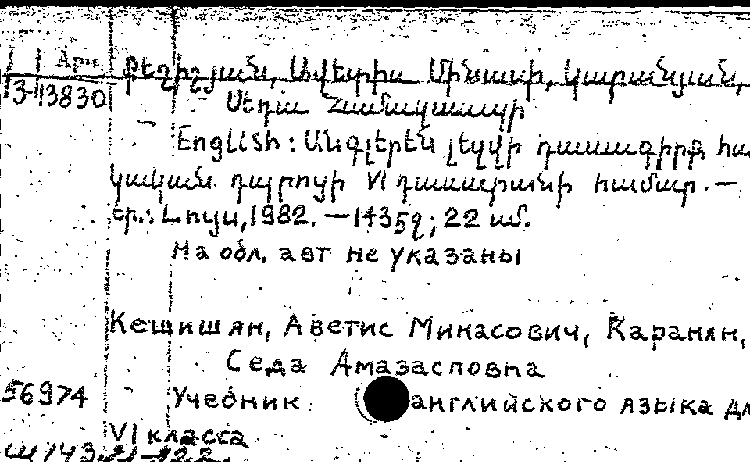 Арм.
Քեշիշյան, Ավետիս Մինասի, Կարանյան,
3-13830
Սեդա Համազասպի
English: Անգլերեն լեզվի դասագիրք հա
կական դպրոցի VI դասարանի համար. —
Եր.: Լույս, 1982. — 143 էջ; 22 սմ.
На обл. авт не указаны
Кешишян, Аветис Минасович, Каранян,
Седа Амазасповна
56974 Учебник английского языка дл
VI класса